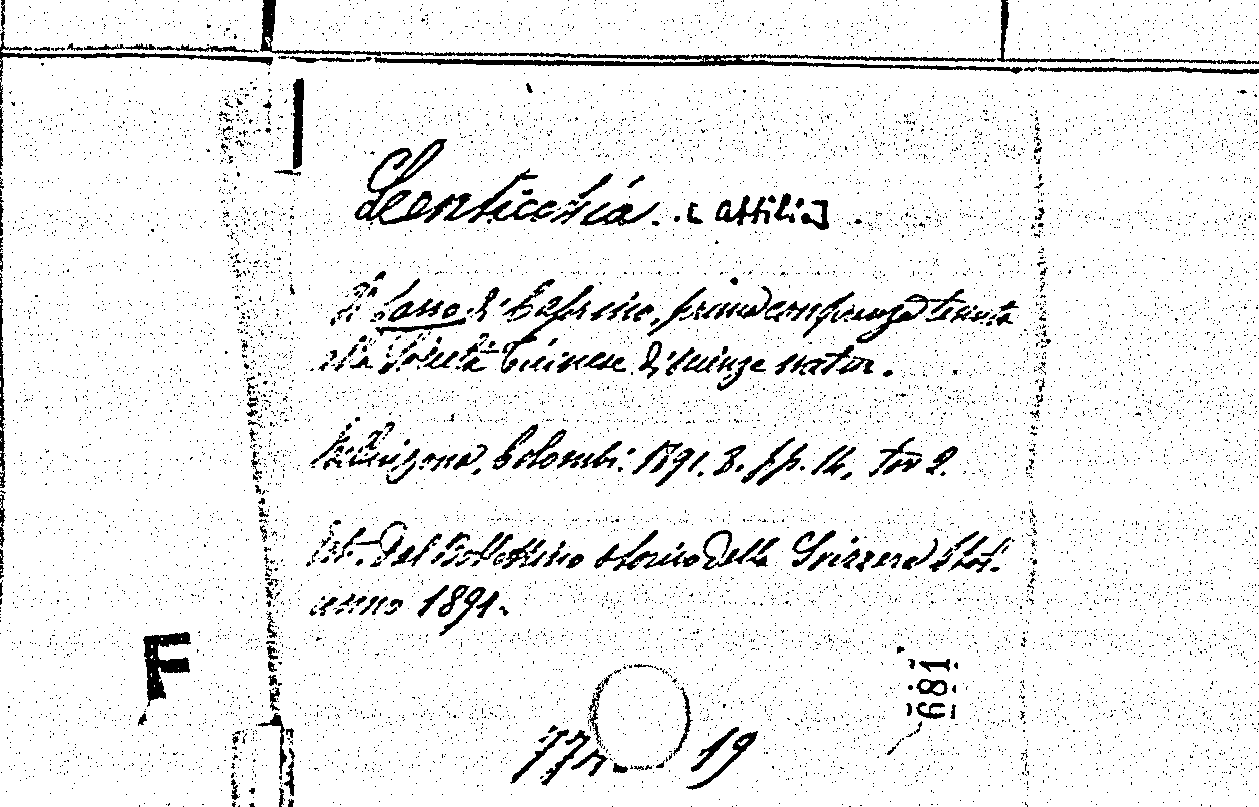 Lenticchia. [Attilio].
Il Sasso di Caprino, prima conferenza tenuta
alla Società Ticinese di scienze natur.
Bellinzona, Colombi. 1891. 8. pp. 14, tav 2.
Est. Dal Bollettino storico della Svizzera Ital.
anno 1891.
F
681
77. 19